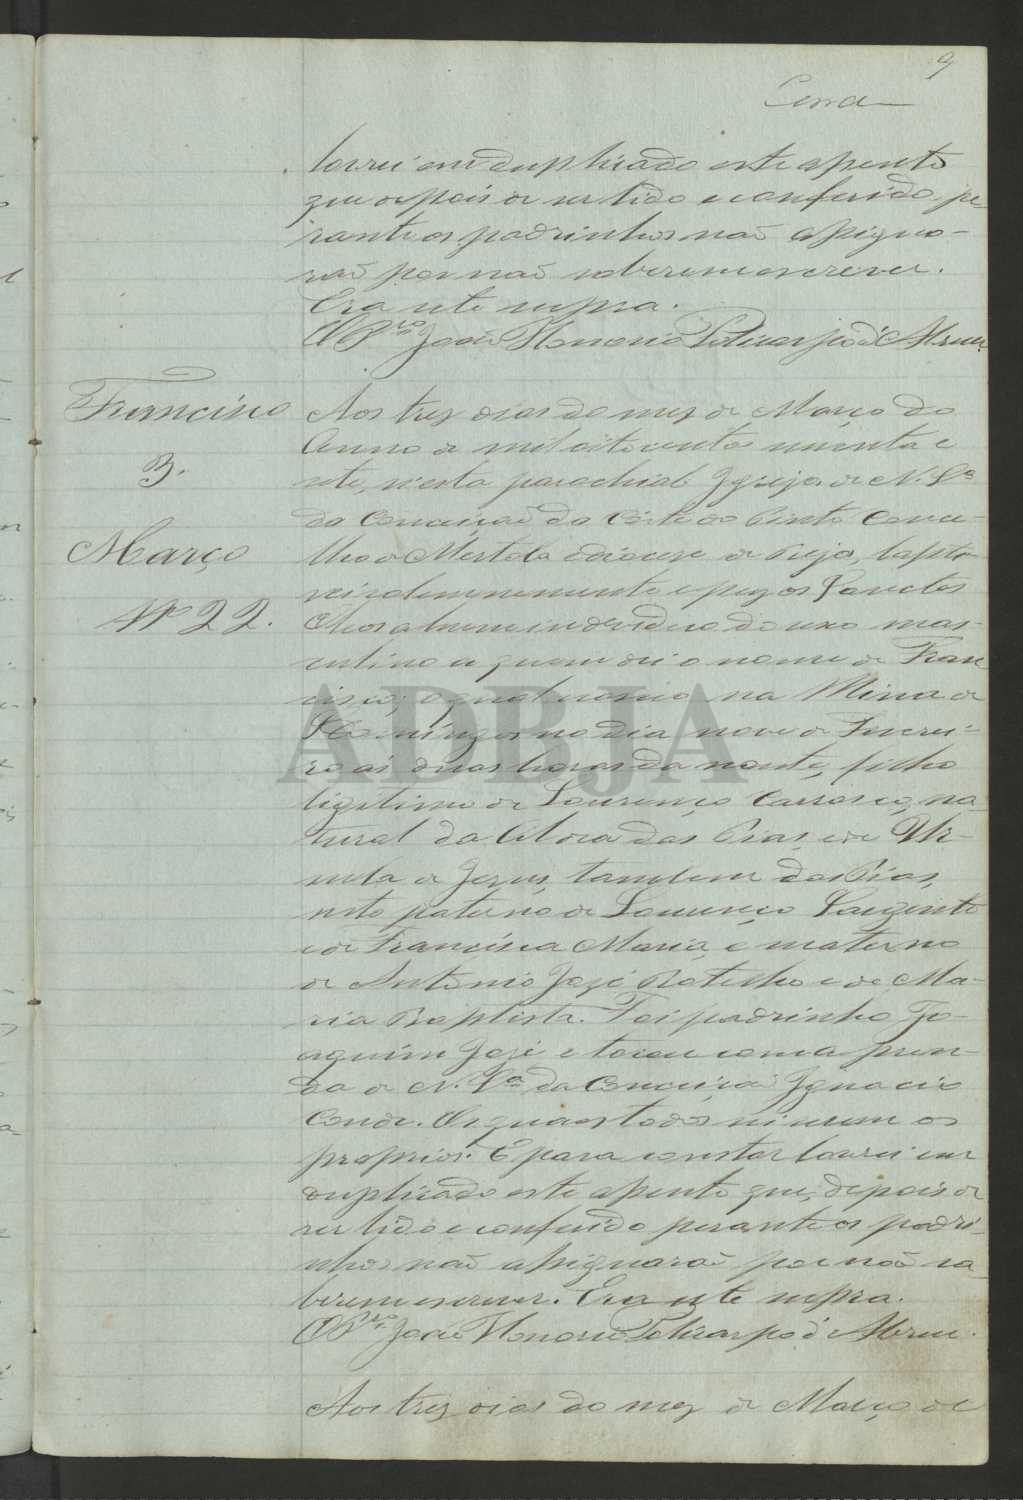 9
lavrei em duplicado este assento
que depois de ser lido e conferido pe-
rante os padrinhos não assigna-
rão por não saberem escrever.
Era ut supra.
O P.ro João Honorio Policarpo d'Abreu
Francisco
3.
Março
Nº 22.
Aos trez dias do mez de Março do
Anno de mil oitocentos noventa e
sete, n'esta parochial Igreja de N. Sª
da Conceição da Côrte do Pinto Conce-
lho de Mertola diocese de Beja, bapti-
sei solemnemente e puz os Sanctos
Oleos a hum individuo do sexo mas-
culino a quem dei o nome de Fran-
cisco; o qual nasceo na Mina de
S. Domingos no dia nove de Feverei-
ro ás duas horas da noute, filho
ligitimo de Lourenço Carrasco, na-
tural da Aldea das Pias, e de Ur-
sula de Jezus, tambem das Pias,
neto paterno de Lourenço Sargento
e de Francisca Maria, e materno
de Antonio José Botelho e de Ma-
ria Baptista. Foi padrinho Jo-
aquim José e tocou com a pren-
da de N. Sª da Conceição Ignacio
Conde. Os quaes todos si­ncum os
proprios. E para constar lavrei em
duplicado este assento que, depois de
ser lido e conferido perante os padri-
nhos não assignarão por não sa-
berem escrever. Era ut supra.
O P.ro João Honorio Policarpo d'Abreu.
Aos trez dias do mez de Março de
ADBJA